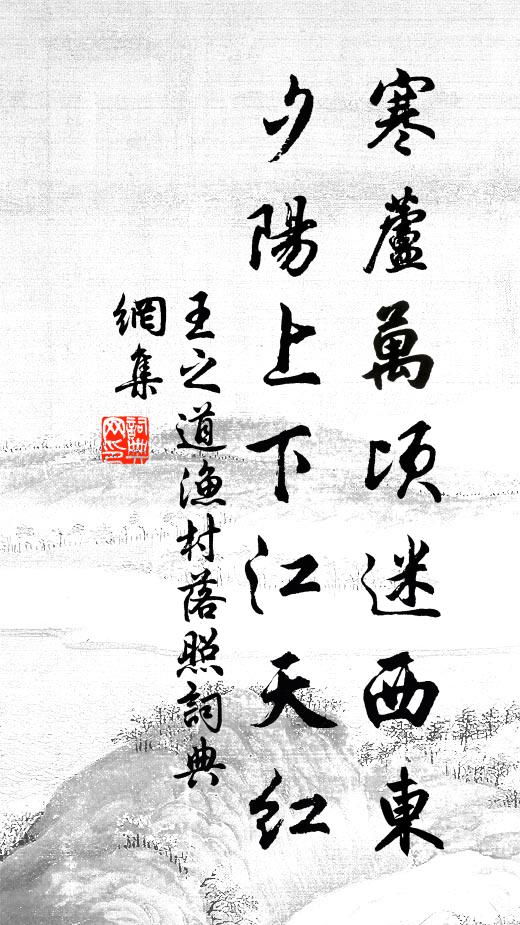 寒蘆萬頃迷西東
夕陽上下江天紅
王之道漁村落照詞典
網集
詞典網印